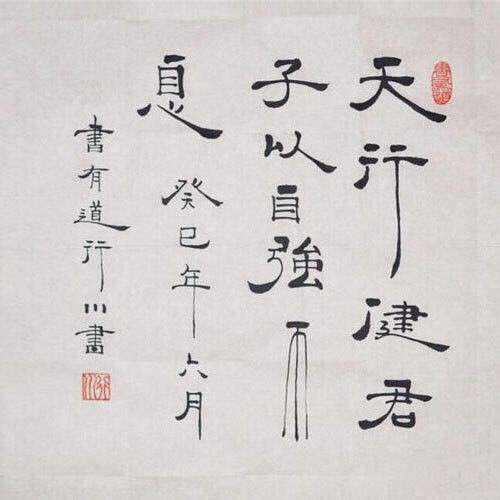 天行健君
子以自強不
息 癸巳年六月
書有道行川書